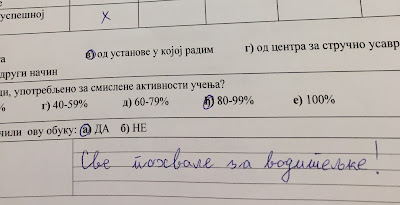 успешној X
в) од установе у којој радим г) од центра за стручно усавр
други начин
ди, употребљено за смислене активности учења?
% г) 40-59% д) 60-79% ђ) 80-99% е) 100%
чили ову обуку: а) ДА б) НЕ
Све похвале за водитељке!